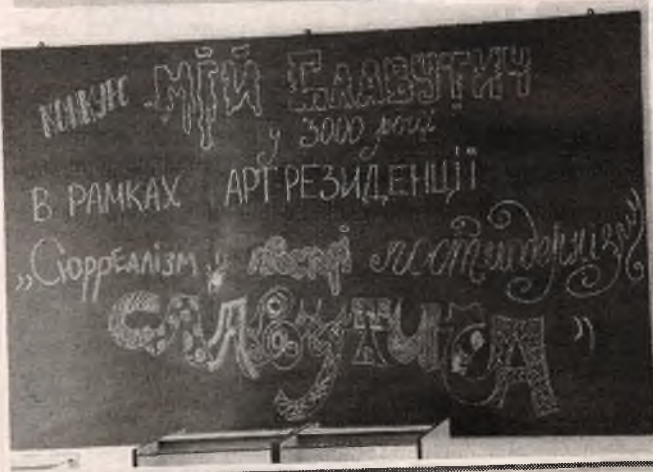 конкурс МРІЙ СЛАВУТИЧ
у 3000 році
В РАМКАХ АРТРЕЗИДЕНЦІЇ
„Сюрреалізм у постмодернізму
СЛАВУТИЧА”